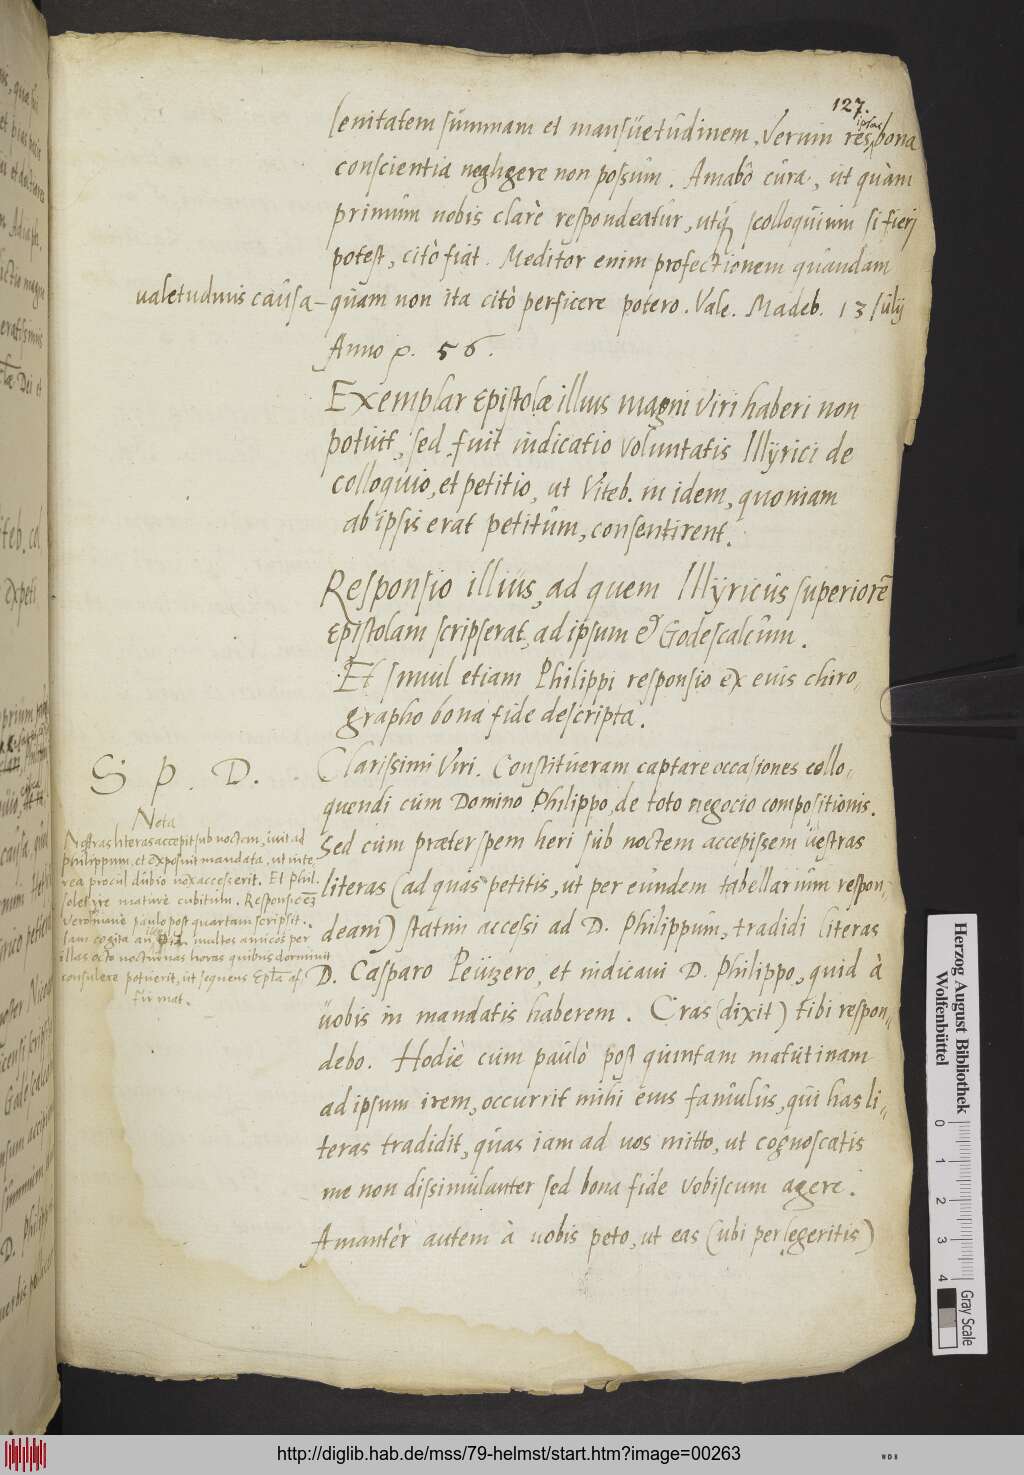 127.
lenitatem summam et mansuetudinem. Verum res ipsas bona
conscientia negligere non possum. Amabò cura, ut quàm
primùm nobis clarè respondeatur, utq́ colloquium si fierj
potest, citò fiat. Meditor enim profectionem quandam
ualetudinis causa – quam non ita citò perficere potero. Vale. Madeb. 13 Julij
Anno p. 56.
Exemplar Epistolæ illius magni viri haberi non
potuit, sed fuit indicatio voluntatis Illyrici de
colloquio, et petitio, ut Viteb. in idem, quoniam
ab ipsis erat petitum, consentirent.
Responsio illius, ad quem Illyricus superiorē
Epistolam scripserat, ad ipsum & Godescalcum.
Et simul etiam Philippi responsio ex eius chiro,
grapho bona fide descripta.
S P. D.
Clarissimi Viri. Constitueram captare occasiones collo,,
quendi cum Domino Philippo, de toto negocio compositionis.
Sed cum præter spem heri sub noctem accepissem uestras
literas (ad quas petitis, ut per eundem tabellarium respon,,
deam) statim accessi ad D. Philippum, tradidi literas
D. Casparo Peuzero, et indicaui D. Philippo, quid à
uobis in mandatis haberem. Cras (dixit) tibi respon,,
debo. Hodiè cum paulò post quintam matutinam
ad ipsum irem, occurrit mihi eius famulus, qui has li,,
teras tradidit, quas iam ad uos mitto, ut cognoscatis
me non dissimulanter sed bona fide vobiscum agere.
Amantèr autem à uobis peto, ut eas (ubi perlegeritis)
Nota
Nostras literas accepit sub noctem, iuit ad
Philippum, et exposuit mandata, ut inte,
rea procul dubio nox accesserit. Et Phil.
solet ire mature cubitum. Responsio ēz
Veronianè paulo post quartam scripsit.
Iam cogita an multos amicos per
illas octo nocturnas horas quibus dormiuit
consulere potuerit, ut sequens Epla af,
firmat.
Herzog August Bibliothek
Wolfenbüttel
0 1 2 3 4
Gray Scale
http://diglib.hab.de/mss/79-helmst/start.htm?image=00263